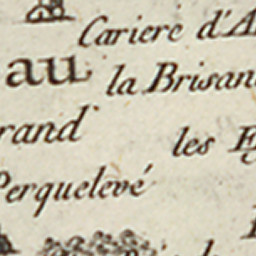 Cariere d'A
au la Brisan
rand les E
Perquelevé